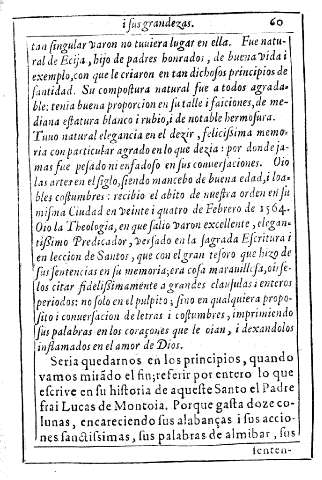 i sus grandezas. 60
tan singular varon no tuviera lugar en ella. Fue natu-
ral de Ecija, hijo de padres honrados, de buena vida i
exemplo, con que le criaron en tan dichosos principios de
santidad. Su compostura natural fue a todos agrada-
ble: tenia buena proporcion en su talle i faiciones, de me-
diana estatura blanco i rubio, i de notable hermosura.
Tuvo natural elegancia en el dezir, felicissima memo-
ria con particular agrado en lo que dezia: por donde ja-
mas fue pesado ni enfadoso en sus conversaciones. Oio
las artes en el siglo, siendo mancebo de buena edad, i loa-
bles costumbres: recibio el abito de nuestra orden en su
misma Ciudad en veinte i quatro de Febrero de 1564.
Oio la Theologia, en que salio varon excellente, elegan-
tissimo Predicador, versado en la sagrada Escritura i
en leccion de Santos, que con el gran tesoro que hizo de
sus sentencias en su memoria; era cosa maravillosa, oirse-
los citar fidelissimamente a grandes clausulas i enteros
periodos: no solo en el pulpito; sino en qualquiera propo-
sito i conuersacion de letras i costumbres, imprimiendo
sus palabras en los coraçones que le oian, i dexandolos
inflamados en el amor de Dios.
Seria quedarnos en los principios, quando
vamos mirãdo el fin; referir por entero lo que
escrive en su historia de aqueste Santo el Padre
frai Lucas de Montoia. Porque gasta doze co-
lunas, encareciendo sus alabanças i sus accio-
nes sanctissimas, sus palabras de almibar, sus
senten-